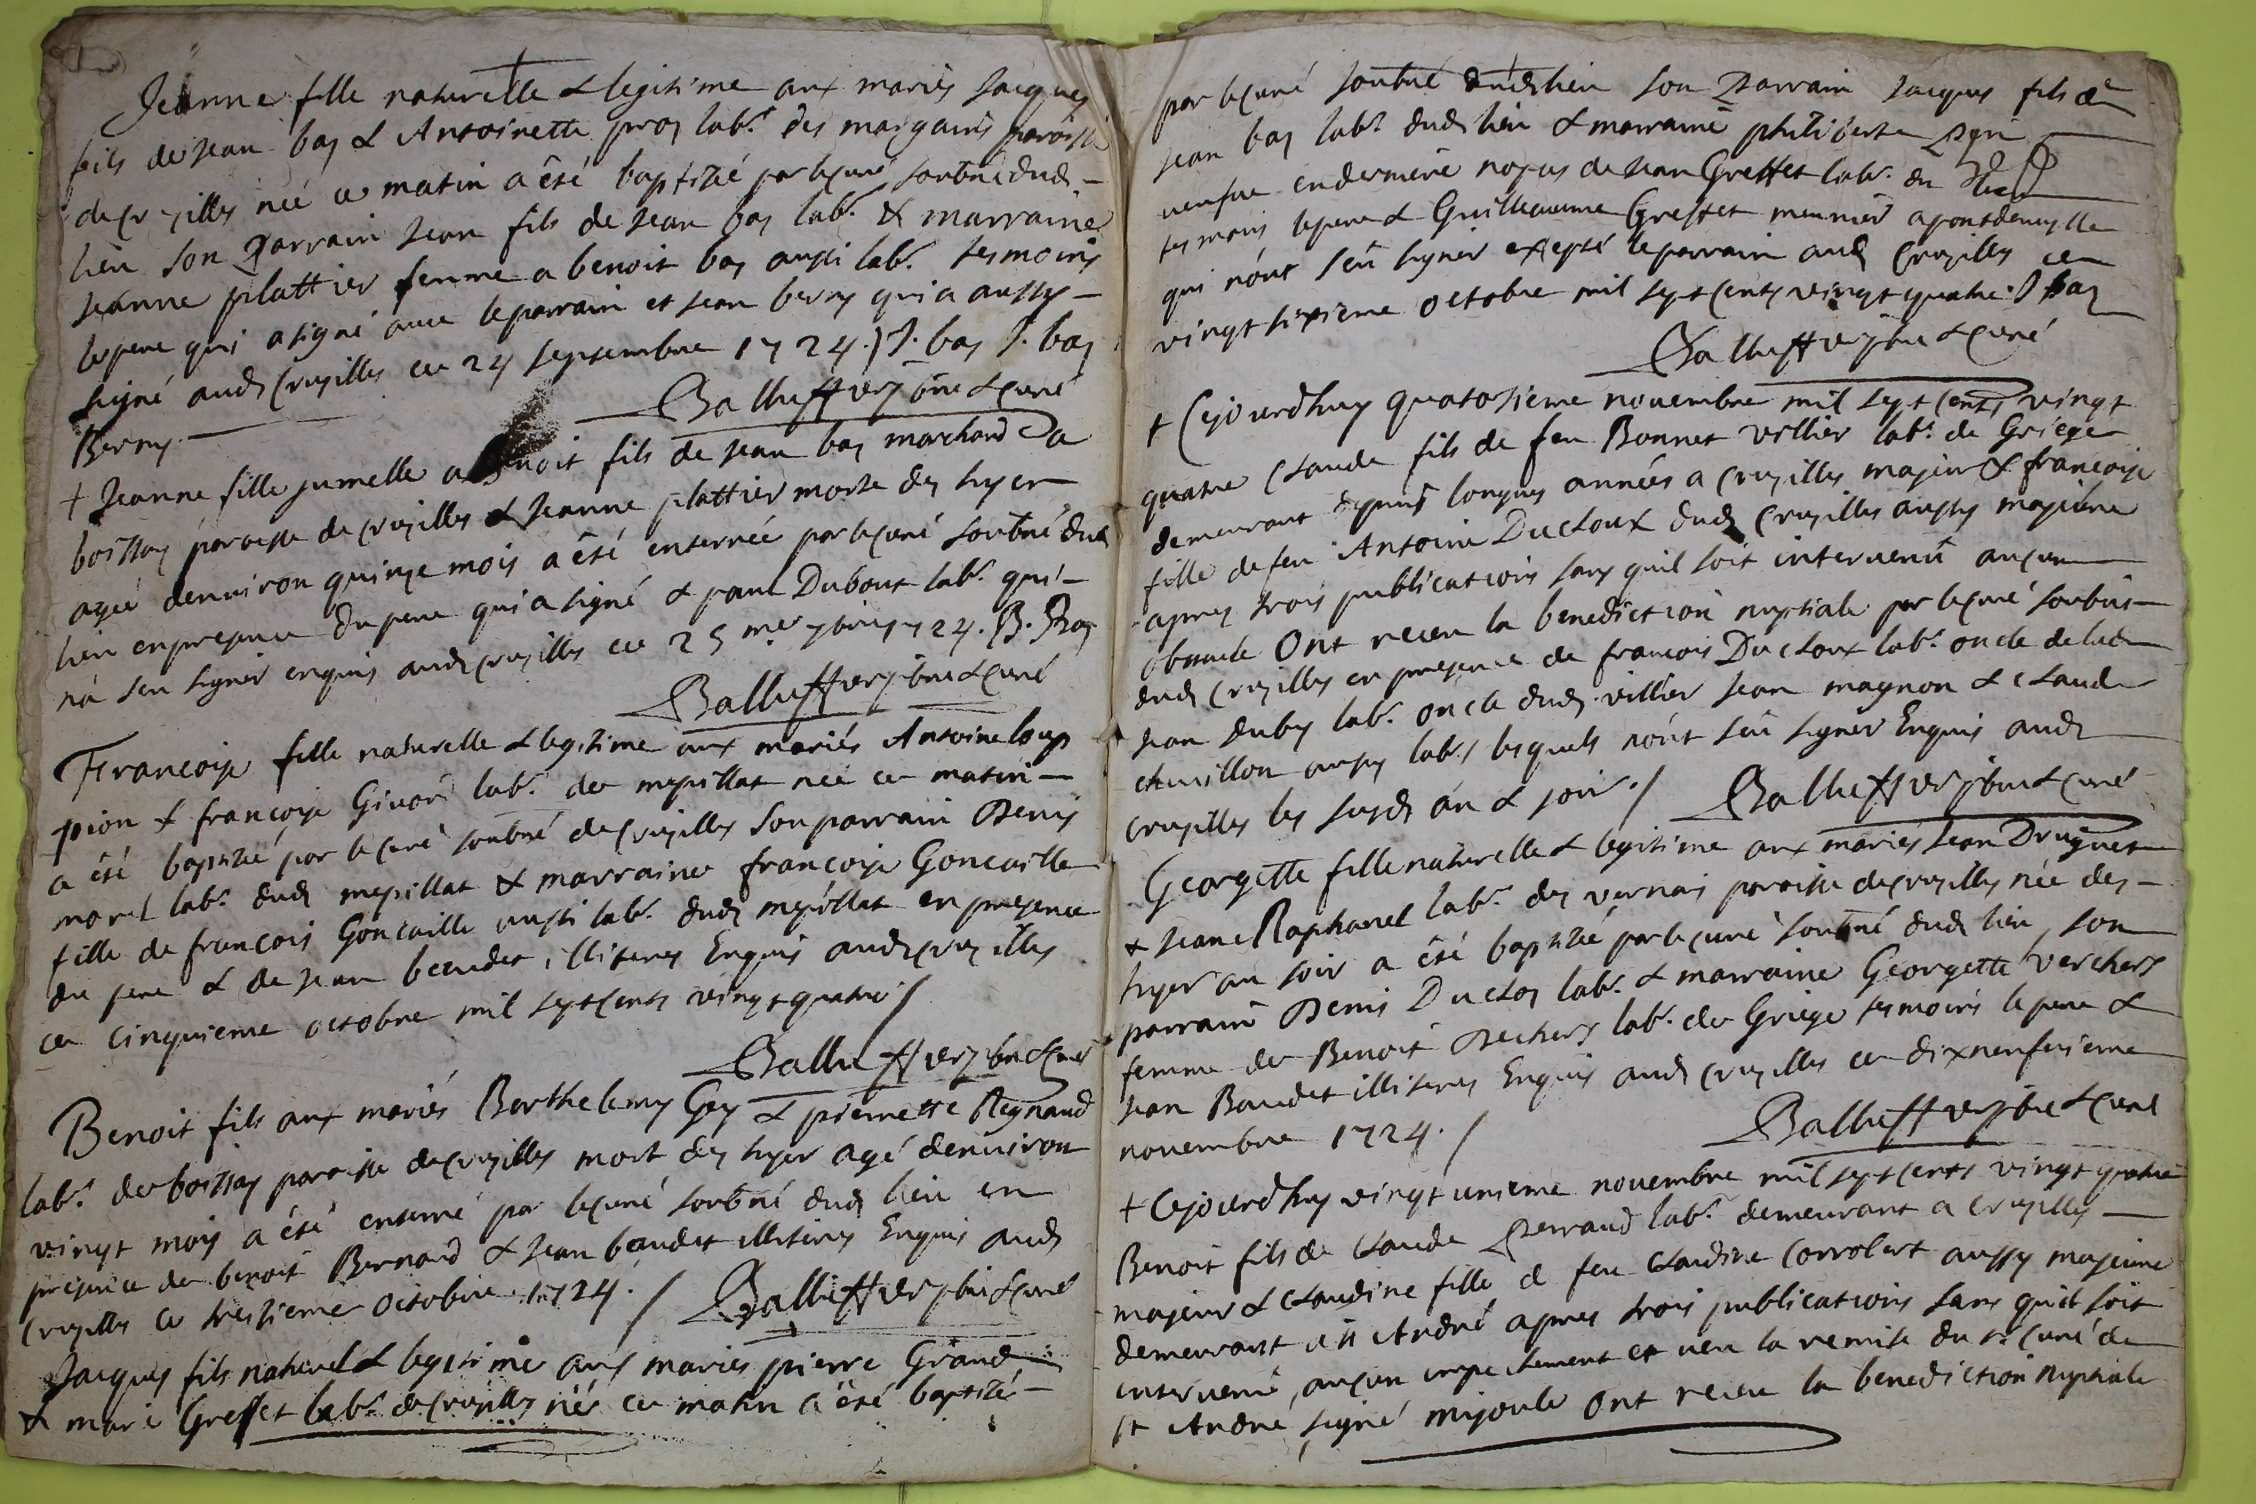 Jeanne fille naturelle & legitime aux mariés Jacques
fils de Jean bay & Antoinette proy labr. des margains paroisse
de cruzilles née ce matin a été baptisée par le curé soubné dud.
lieu son Parrain Jean fils de Jean bay labr. & marraine
Jeanne plattier femme a benoit bay aussi labr. tesmoins
le pere qui a signé avec le parrain et Jean berny qui a aussy
signé aud Cruzilles ce 24 septembre 1724./ J. bay J. bay
Berny
+ Jeanne fille jumelle a Benoit fils de Jean bay marchand a
boissay paroisse de cruzilles & Jeanne plattier morte des hyer
agée denviron quinze mois a été enterrée par le curé soubné dud
lieu en presence du pere qui a signé & paul Dubout labr. qui
na seu signer enquis aud cruzilles ce 25 me 7bre 1724. B. Bay
Francoise fille naturelle & legitime aux mariés Antoine loup
pion & francoise Givord labr. de mepillat née ce matin
a été baptisée par le curé soubné de cruzilles son parrain Denis
morel labr. dud mepillat & marraine francoise Goncaille
fille de francois Goncaille aussi labr. dud mepillat en presence
du pere & de Jean beaudet illiterés Enquis aud cruzilles
ce cinquieme octobre mil sept cents vingt quatre /
Benoit fils aux mariés Barthelemy Gey & pierrette Regnaud
labr. de boissay paroisse de cruzilles mort des hyer agé denviron
vingt mois a été enterré par le curé soubné dud lieu en
presence de benoit Bernard & Jean beaudet illiterés Enquis aud
Cruzilles ce treizieme octobre 1724. /
Jacques fils naturel & legitime aux mariés pierre Grand
& marie Greffet labr. de cruzilles né ce matin a été baptisé
par le curé soubné dud lieu son Parrain Jacques fils de
Jean bay labr. dud lieu & marraine philiberte
veufve en derniere nopces de Jean Greffet labr. du
tesmoins le pere & Guilleaume Greffet meunier a pontdeveylle
qui nont seu signer excepté le parrain aud Cruzilles ce
vingt sixieme octobre mil sept cents vingt quatre. J bay
+ Cejourdhuy quatorsieme novembre mil sept cents vingt
quatre Claude fils de feu Bonnet villier labr. de Griége
demeurant depuis longues années a Cruzilles majeur & francoise
fille de feu Antoine Ducloux dud Cruzilles aussy majeure
apres trois publications sans quil soit intervenu aucun
obstacle Ont receu la benediction nuptiale par le curé soubné
dud Cruzilles en presence de francois Ducloux labr. oncle de lad
Jean duby labr. oncle dud. villier Jean magnon & Claude
chevillon aussy labr./ lesquels nont seu signer Enquis aud
cruzilles les susd an & jour. /
Georgette fille naturelle & legitime aux mariés Jean Druguet
& Jeane Raphanel labr. des vernais paroisse de cruzilles née des
hyer au soir a été baptisée par le curé soubné dud lieu, son
parrain Denis Duclos labr. & marraine Georgette verchers
femme de Benoit Dechers labr. de Griege tesmoins le pere &
Jean Baudet illiterés Enquis aud Cruzilles ce dixneufvieme
novembre 1724. /
+ Cejourdhuy vingt unieme novembre mil sept cents vingt quatre
Benoit fils de Claude Perraud labr. demeurant a Cruzilles
majeur & Claudine fille a feu Claudine Corrobert aussy majeure
demeurant a st André apres trois publications sans quil soit
intervenu, aucun empechement et veu la remise du sr. Curé de
st André, signé mijoule ont receu la benediction nuptiale